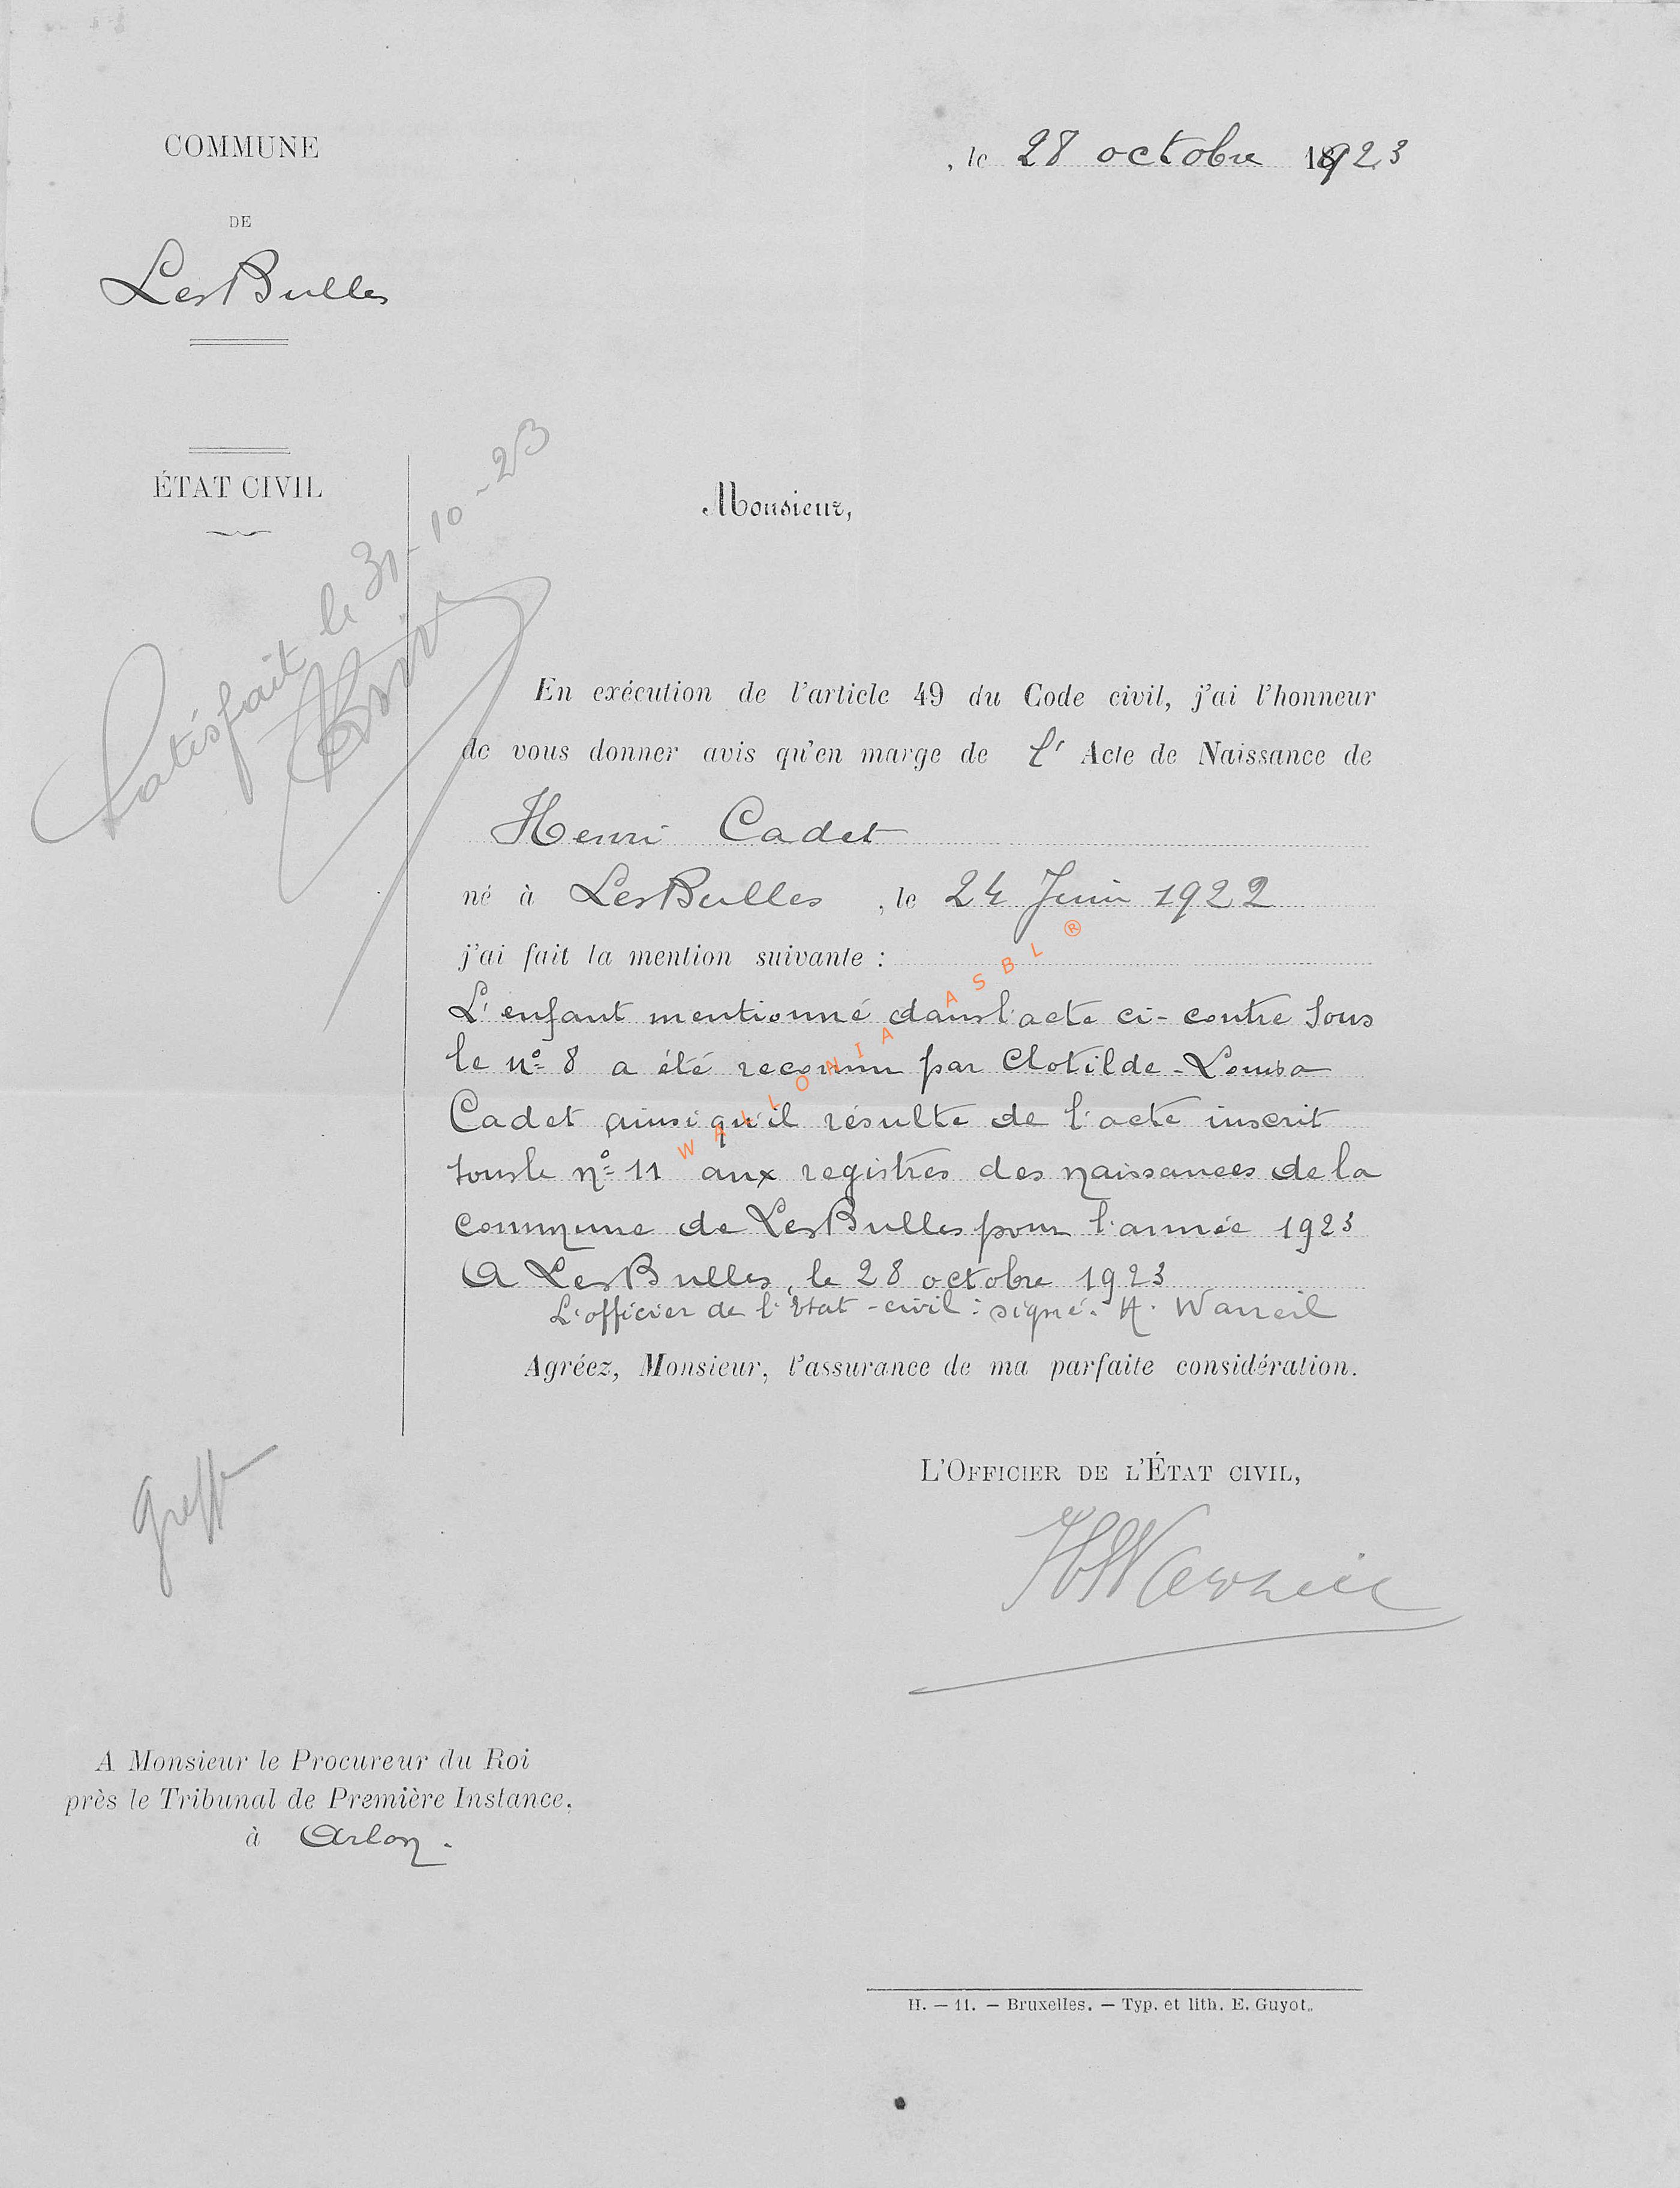 COMMUNE
DE
Les Bulles
, le 28 octobre 1923
ÉTAT CIVIL
Satisfait le 31-10-23
Monsieur,
En exécution de l'article 49 du Code civil, j'ai l'honneur
de vous donner avis qu'en marge de l' Acte de Naissance de
Henri Cadet
né à Les Bulles , le 24 Juin 1922
j'ai fait la mention suivante :
L'enfant mentionné dans l'acte ci-contre sous
le nº 8 a été reconnu par Clotilde-Louisa
Cadet ainsi qu'il résulte de l'acte inscrit
sous le nº 11 aux registres des naissances de la
commune de Les Bulles pour l'année 1923
A Les Bulles, le 28 octobre 1923
L'officier de l'Etat-civil : signé. H. Warreil
WALLONIA ASBL ®
Agréez, Monsieur, l'assurance de ma parfaite considération.
L'OFFICIER DE L'ÉTAT CIVIL,
H Warreil
Greffe
A Monsieur le Procureur du Roi
près le Tribunal de Première Instance,
à Arlon.
H. — 11. — Bruxelles. — Typ. et lith. E. Guyot.